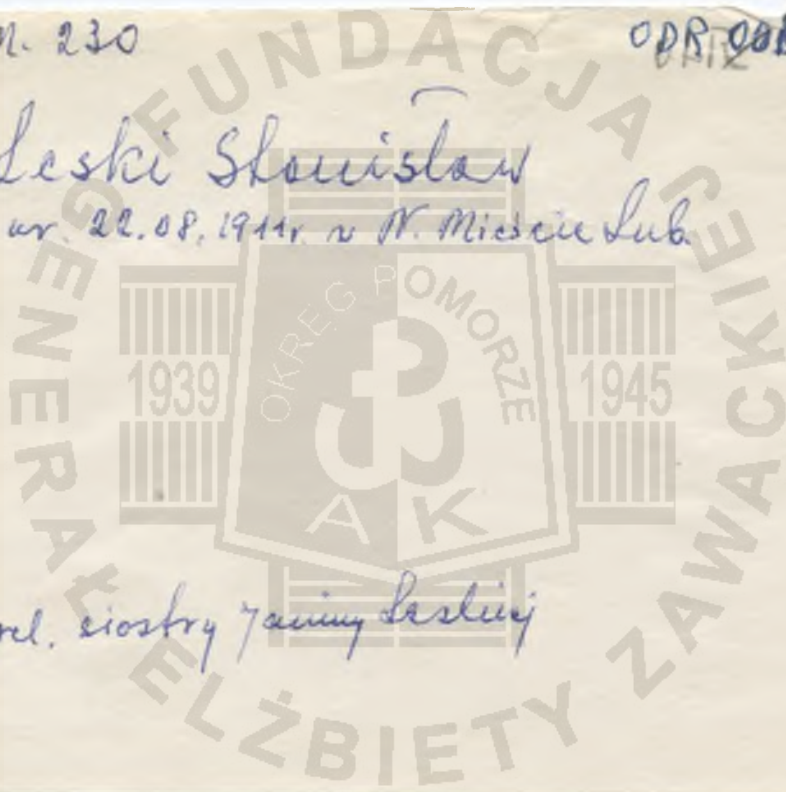 M. 230 ODR
Leski Stanisław
ur. 22.08.1911r. w N. Mieście Lub.
rel. siostry Janiny Leskiej
FUNDACJA GENERAŁ ELŻBIETY ZAWACKIEJ
OKRĘG POMORZE
1939 1945
AK